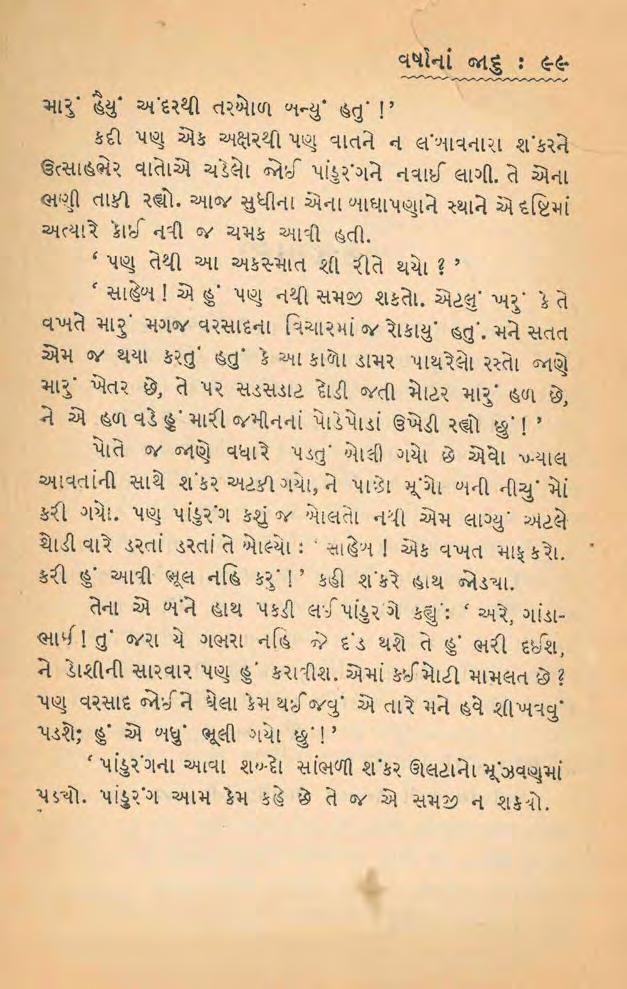 વર્ષાનાં જાદુ : ૯૯
મારું હૈયું અંદરથી તરબોળ બન્યું હતું !’
કદી પણ એક અક્ષરથી પણ વાતને ન લંબાવનારા શંકરને
ઉત્સાહભેર વાતોએ ચડેલો જોઈ પાંડુરંગને નવાઈ લાગી. તે એના
ભણી તાકી રહ્યો. આજ સુધીના એના બાઘાપણાને સ્થાને એ દૃષ્ટિમાં
અત્યારે કોઈ નવી જ ચમક આવી હતી.
‘ પણ તેથી આ અકસ્માત શી રીતે થયો ? ’
‘ સાહેબ ! એ હું પણ નથી સમજી શકતો. એટલું ખરું કે તે
વખતે મારું મગજ વરસાદના વિચારમાં જ રોકાયું હતું. મને સતત
એમ જ થયા કરતું હતું કે આ કાળો ડામર પાથરેલો રસ્તો જાણે
મારું ખેતર છે, તે પર સડસડાટ દોડી જતી મોટર મારું હળ છે,
ને એ હળ વડે હું મારી જમીનનાં પોડેપોડાં ઉખેડી રહ્યો છું ! ’
પોતે જ જાણે વધારે પડતું બોલી ગયો છે એવો ખ્યાલ
આવતાંની સાથે શંકર અટકી ગયો, ને પાછો મૂંગો બની નીચું મોં
કરી ગયો. પણ પાંડુરંગ કશું જ બોલતો નથી એમ લાગ્યું એટલે
થોડી વારે ડરતાં ડરતાં તે બોલ્યો : ‘ સાહેબ ! એક વખત માફ કરો.
ફરી હું આવી ભૂલ નહિ કરું !’ કહી શંકરે હાથ જોડ્યા.
તેના એ બંને હાથ પકડી લઈ પાંડુરંગે કહ્યું : ‘ અરે, ગાંડા-
ભાઈ ! તું જરા યે ગભરા નહિ જે દંડ થશે તે હું ભરી દઈશ,
ને ડોશીની સારવાર પણ હું કરાવીશ. એમાં કઈ મોટી મામલત છે ?
પણ વરસાદ જોઈને ઘેલા કેમ થઈ જવું એ તારે મને હવે શીખવવું
પડશે; હું એ બધું ભૂલી ગયો છું !’
‘ પાંડુરંગના આવા શબ્દો સાંભળી શંકર ઊલટાનો મૂંઝવણમાં
પડ્યો. પાંડુરંગ આમ કેમ કહે છે તે જ એ સમજી ન શક્યો.